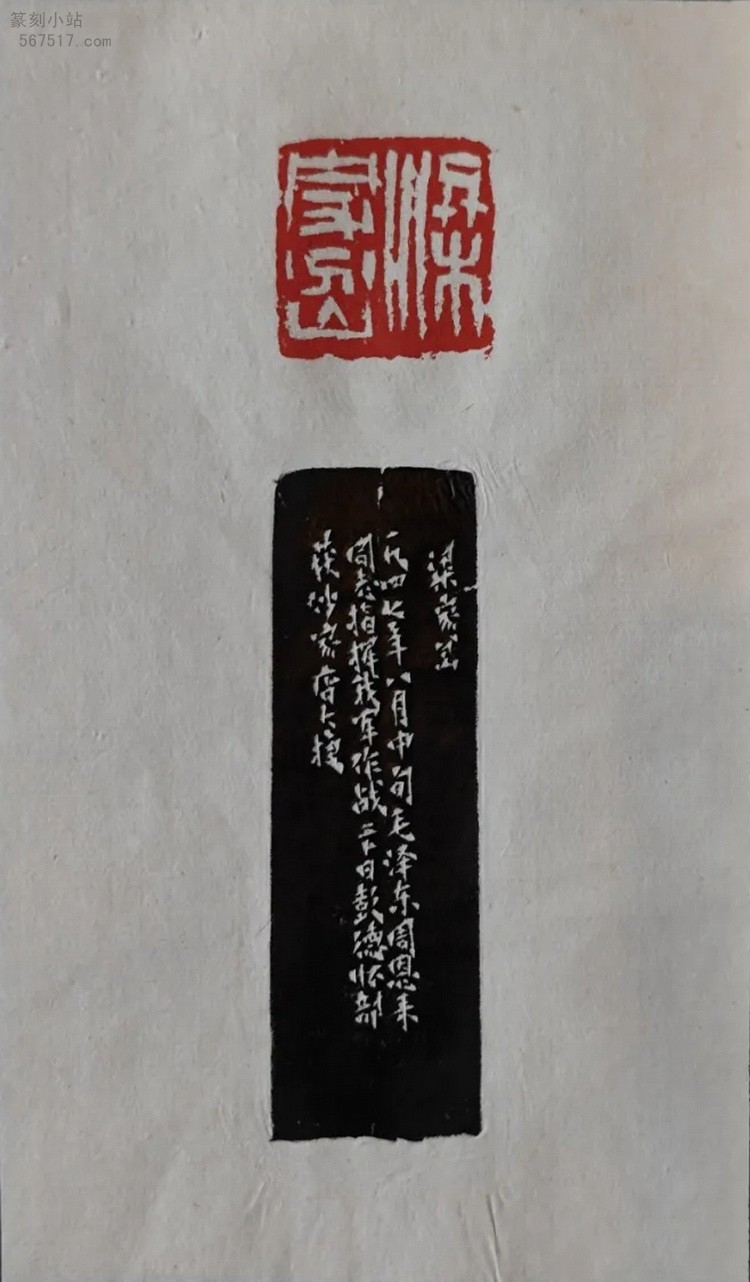 篆刻小站
567517.com
梁
家岔
梁家岔
一九四七年八月中旬毛泽东周恩来
同志指挥我军作战二十日彭德怀部
获沙家店大捷